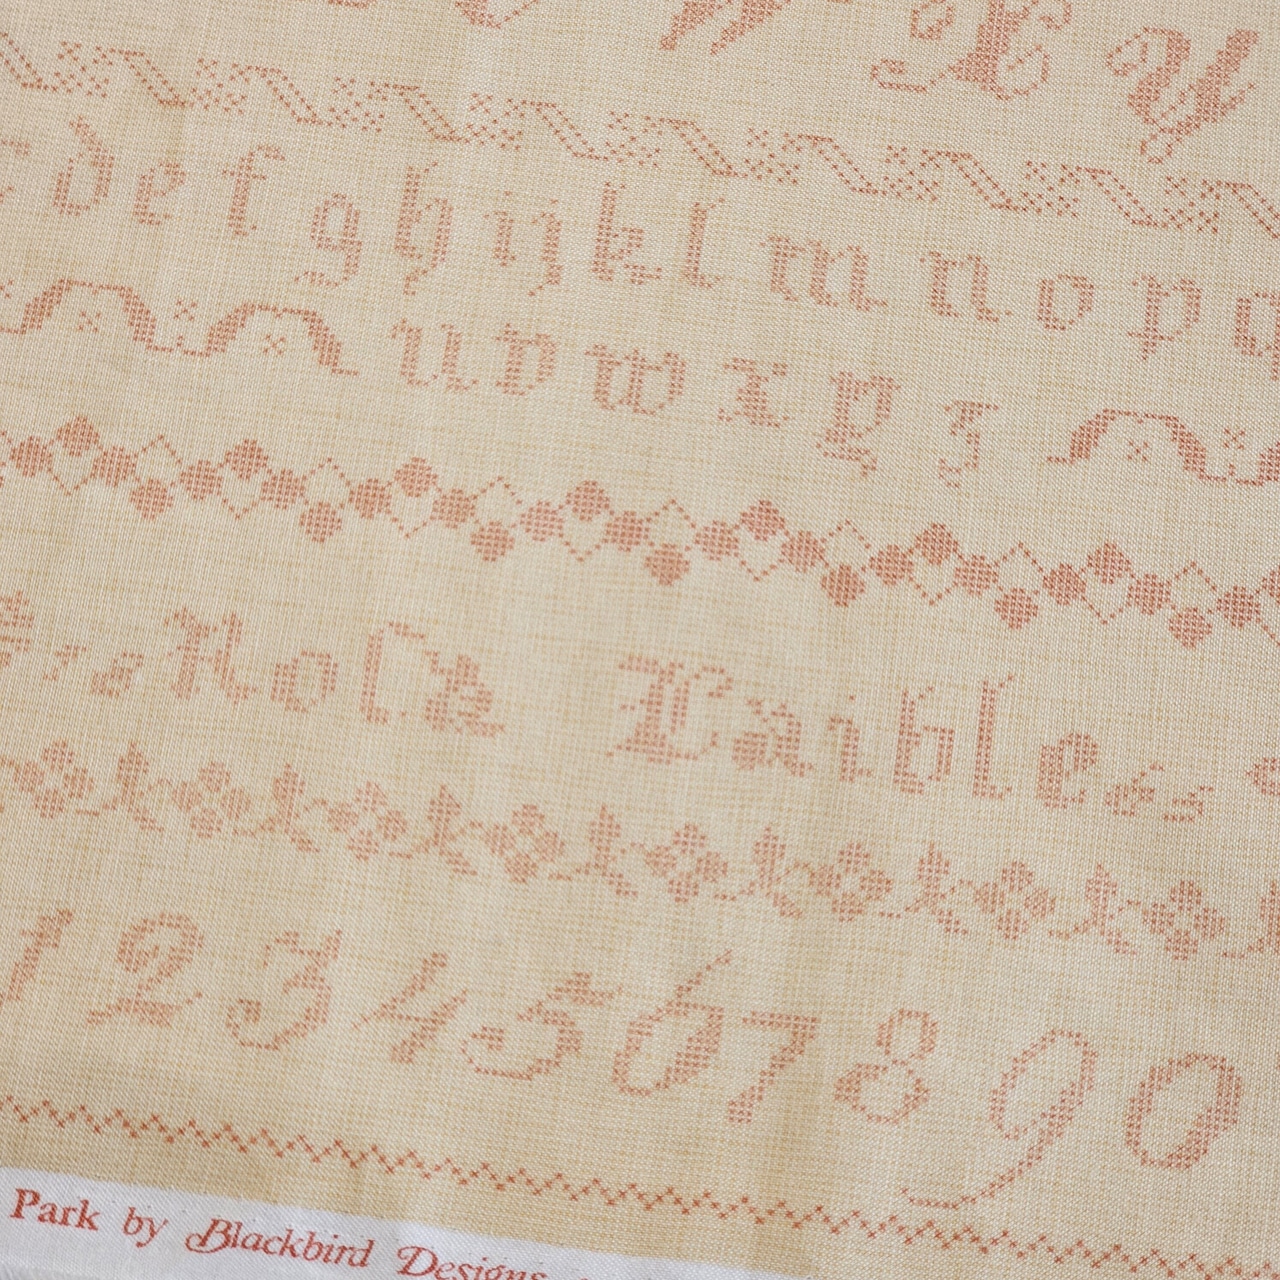 W X Y
d e f g h i j k l m n o p
u v w x y z
1 2 3 4 5 6 7 8 9 0
Park by Blackbird Designs